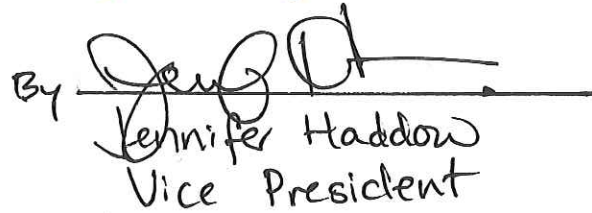 By
Jennifer Haddow
Vice President